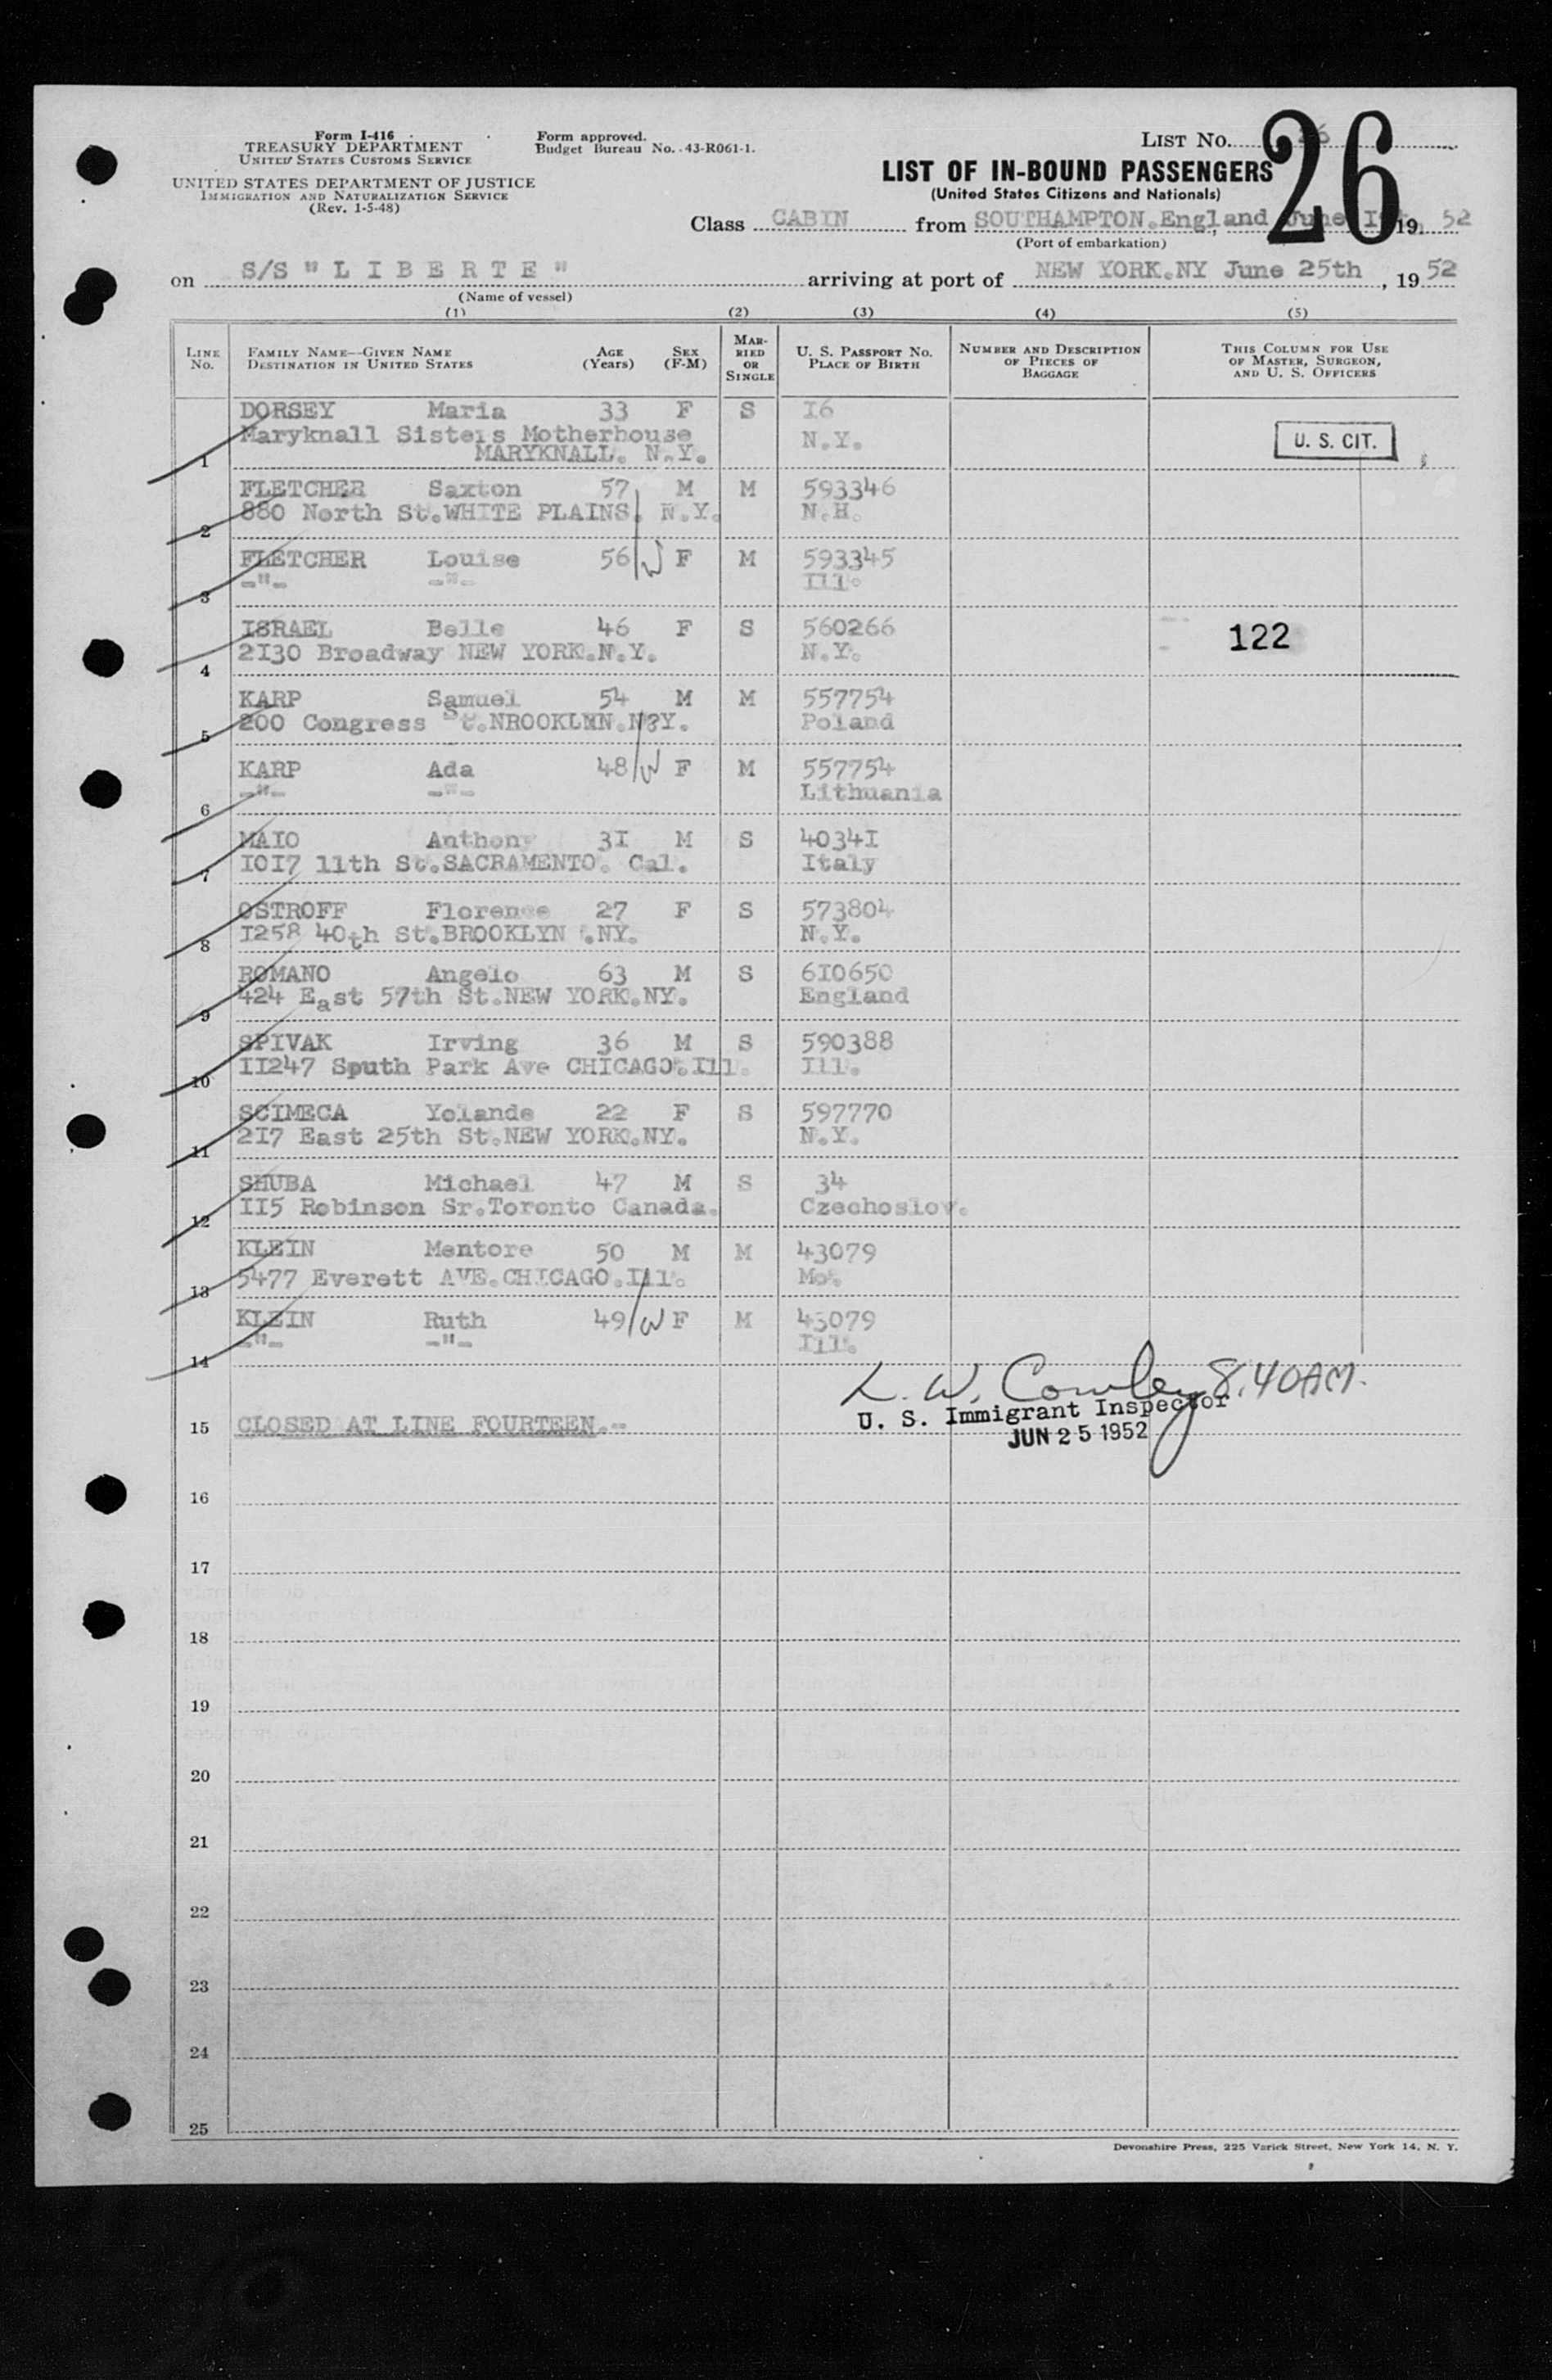 Form I-416
TREASURY DEPARTMENT
UNITED STATES CUSTOMS SERVICE
UNITED STATES DEPARTMENT OF JUSTICE
IMMIGRATION AND NATURALIZATION SERVICE
(Rev. 1-5-48)
Form approved.
Budget Bureau No. 43-R061-1.
LIST No. 26
26
LIST OF IN-BOUND PASSENGERS
(United States Citizens and Nationals)
Class CABIN from SOUTHAMPTON.England, June 19 52
(Port of embarkation)
on S/S "LIBERTE" arriving at port of NEW YORK.NY June 25th, 19 52
(Name of vessel)
(1) (2) (3) (4) (5)
LINE No. FAMILY NAME—GIVEN NAME DESTINATION IN UNITED STATES AGE (Years) SEX (F-M) MARRIED OR SINGLE U. S. PASSPORT No. PLACE OF BIRTH NUMBER AND DESCRIPTION OF PIECES OF BAGGAGE THIS COLUMN FOR USE OF MASTER, SURGEON, AND U. S. OFFICERS
DORSEY Maria 33 F S I6
Maryknall Sisters Motherhouse N.Y. U. S. CIT.
1 MARYKNALL. N.Y.
FLETCHER Saxton 57 M M 593346
2 880 North St.WHITE PLAINS. N.Y. N.H.
FLETCHER Louise 56 W F M 593345
3 -"- -"- Ill.
ISRAEL Belle 46 F S 560266 122
4 2I30 Broadway NEW YORK.N.Y. N.Y.
KARP Samuel 54 M M 557754
5 200 Congress St.NROOKLNN.N?Y. Poland
KARP Ada 48 W F M 557754
6 -"- -"- Lithuania
MAIO Anthony 3I M S 4034I
7 IOI7 11th St.SACRAMENTO. Cal. Italy
OSTROFF Florence 27 F S 573804
8 I258 40th St.BROOKLYN .NY. N.Y.
ROMANO Angelo 63 M S 6I0650
9 424 East 57th St.NEW YORK.NY. England
SPIVAK Irving 36 M S 590388
10 II247 Sputh Park Ave CHICAGO.Ill. Ill.
SCIMECA Yolande 22 F S 597770
11 2I7 East 25th St.NEW YORK.NY. N.Y.
SHUBA Michael 47 M S 34
12 II5 Robinson Sr.Toronto Canada. Czechoslov.
KLEIN Mentore 50 M M 43079
13 5477 Everett AVE.CHICAGO.Ill. Mo.
KLEIN Ruth 49 W F M 43079
14 -"- -"- Ill.
L. W. Cowley 8.40AM.
U. S. Immigrant Inspector
JUN 25 1952
15 CLOSED AT LINE FOURTEEN.-
16
17
18
19
20
21
22
23
24
25
Devonshire Press, 225 Varick Street, New York 14, N. Y.